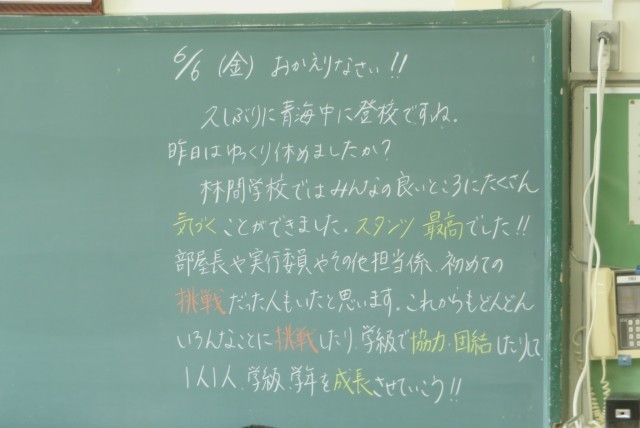 6/6 (金) おかえりなさい!!
久しぶりに青海中に登校ですね。
昨日はゆっくり休めましたか?
林間学校ではみんなの良いところにたくさん
気づくことができました。スタンツ最高でした!!
部屋長や実行委員やその他担当係、初めての
挑戦だった人もいたと思います。これからもどんどん
いろんなことに挑戦したり、学級で協力・団結したりして、
1人1人、学級、学年を成長させていこう!!